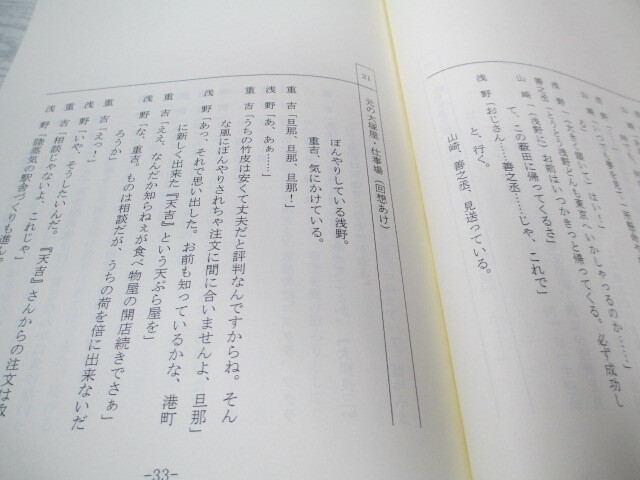 山崎「
善之丞「とうとう浅野どんも東京へいかしゃるのか……」
浅野「
て、この薮田に帰ってくるさ」
山崎「（浅野に）お前はいつかきっと帰ってくる。必ず成功し
浅野「おじさん……善之丞……じゃ、これで」
と、行く。
山崎、善之丞、見送っている。
21 元の大塚屋・仕事場（回想あけ）
ぼんやりしている浅野。
重吉、気にかけている。
重吉「旦那、旦那、旦那！」
浅野「あ、あぁ……」
重吉「うちの竹皮は安くて丈夫だと評判なんですからね。そん
な風にぼんやりされちゃ注文に間に合いませんよ、旦那」
浅野「あっ、それで思い出した。お前も知っているかな、港町
に新しく出来た『天吉』という天ぷら屋を」
重吉「ええ、なんだか知らねぇが食べ物屋の開店続きでさぁ」
浅野「な、重吉、ものは相談だが、うちの荷を倍に出来ないだ
ろうか」
重吉「えっ！」
浅野「いや、そうしたいんだ。『天吉』さんからの注文は
重吉「相談じゃないよ、これじゃ」
浅野「陸蒸気の駅舎づくりも進ん
-33-